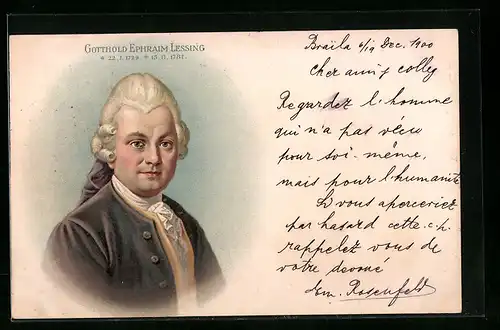 GOTTHOLD EPHRAIM LESSING
* 22. I. 1729 + 15. II. 1781.
Braïla 6/19 Dec. 1900
Cher ami & colleg
Regardez l'homme
qui n'a pas vécu
pour soi-même,
mais pour l'humanité
Si vous apercevriez
par hasard cette c.p.
rappelez vous de
votre devoué
Em. Rosenfeld